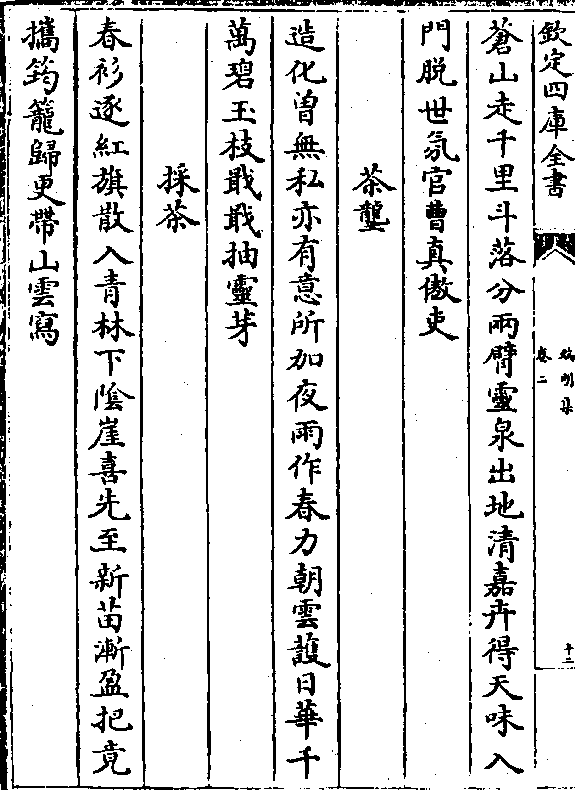 欽定四庫全書
端明集
卷二
十二
蒼山走千里斗落分兩臂靈泉出地清嘉卉得天味入
門脱世氛官曹真傲吏
茶壟
造化曽無私亦有意所加夜雨作春力朝雲護日華千
萬碧玉枝戢戢抽靈芽
採茶
春衫逐紅旗散入青林下陰崖喜先至新苗漸盈把竟
攜筠籠歸更帶山雲寫